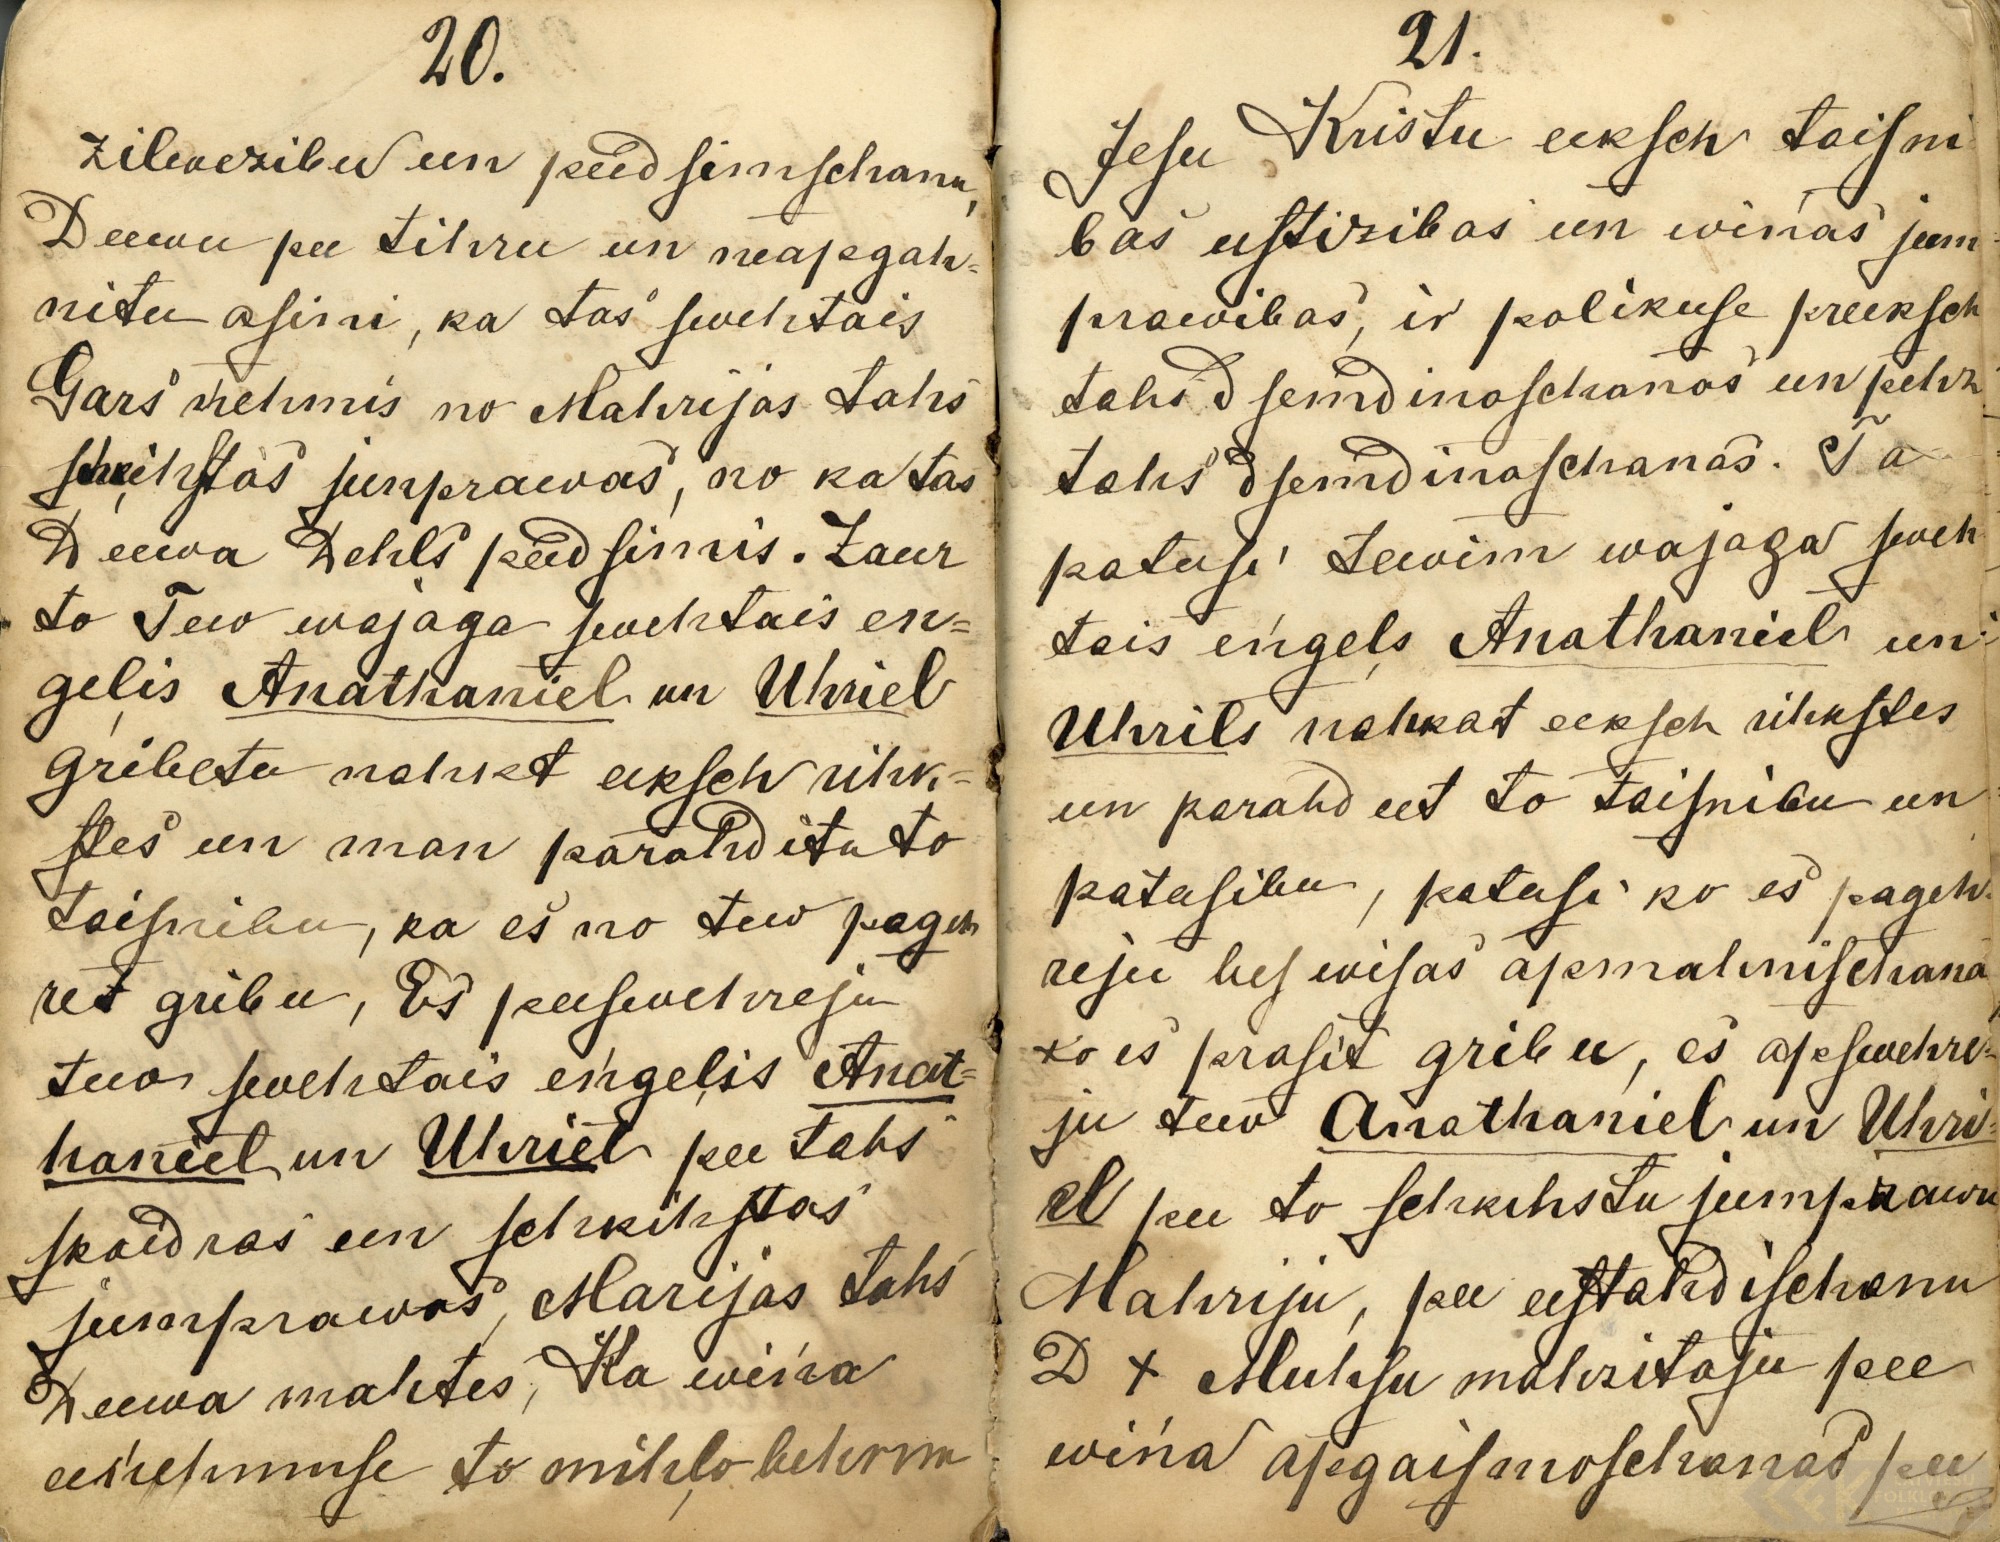 20.
zilwezibu un peedsimschanu,
Deewu pee tihru un neapgah=
nitu asini, ka tas swehtais
Gars ņehmis no Mahrijas tahs
schķihstas junprawas, no ka tas
Deewa Dehls peedsimis. Zaur
to Tew wajaga swehtais en=
geļis Anathaniel un Uhriel
gribetu nahkt eeksch rihk=
stes un man parahditu to
taisnibu, ka es no tew pageh
ret gribu, Es peeswehreju
tewi swehtais eņgeļis Anat=
haniel un Uhriel pee tahs
skaidras un schkihstas
jumprawas, Marijas tahs
Deewa mahtes, Ka wiņa
eeņehmuse to mihļo behrnu
21.
Jesu Kristu eeksch taisni
bas ustizibas un wiņas jum=
prawibas, ir palikuse preeksch
tahs dsemdinaschanas un pehz
tahs dsemdinaschanas. Ta
patusi tewim wajaga sweh
tais eņgeļs Anathaniel un
Uhrils nahkat eeksch rihkstes
un parahdeet to taisnibu un
patusibu, patusi ko es pageh=
reju bes wisas apmahnischana
ko es prasit gribu, es apswehre=
ju tew Anathaniel un Uhri=
el pee to schkihstu jumprawu
Mahriju, pee eestahdischanu
D + Muhsu mahzitaju pee
wiņa apgaismoschanas pee